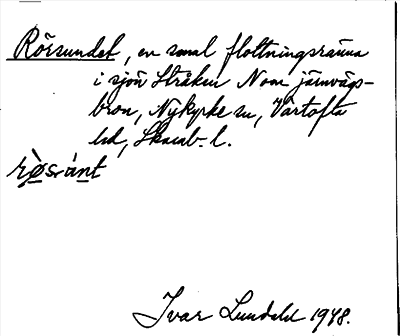 Rörsundet, en smal flottningsränna
i sjön Stråken N om järnvägs-
bron, Nykyrke sn, Vartofta
hd, Skarab. l.
rø̀s̩ánt
Ivar Lundahl 1948.